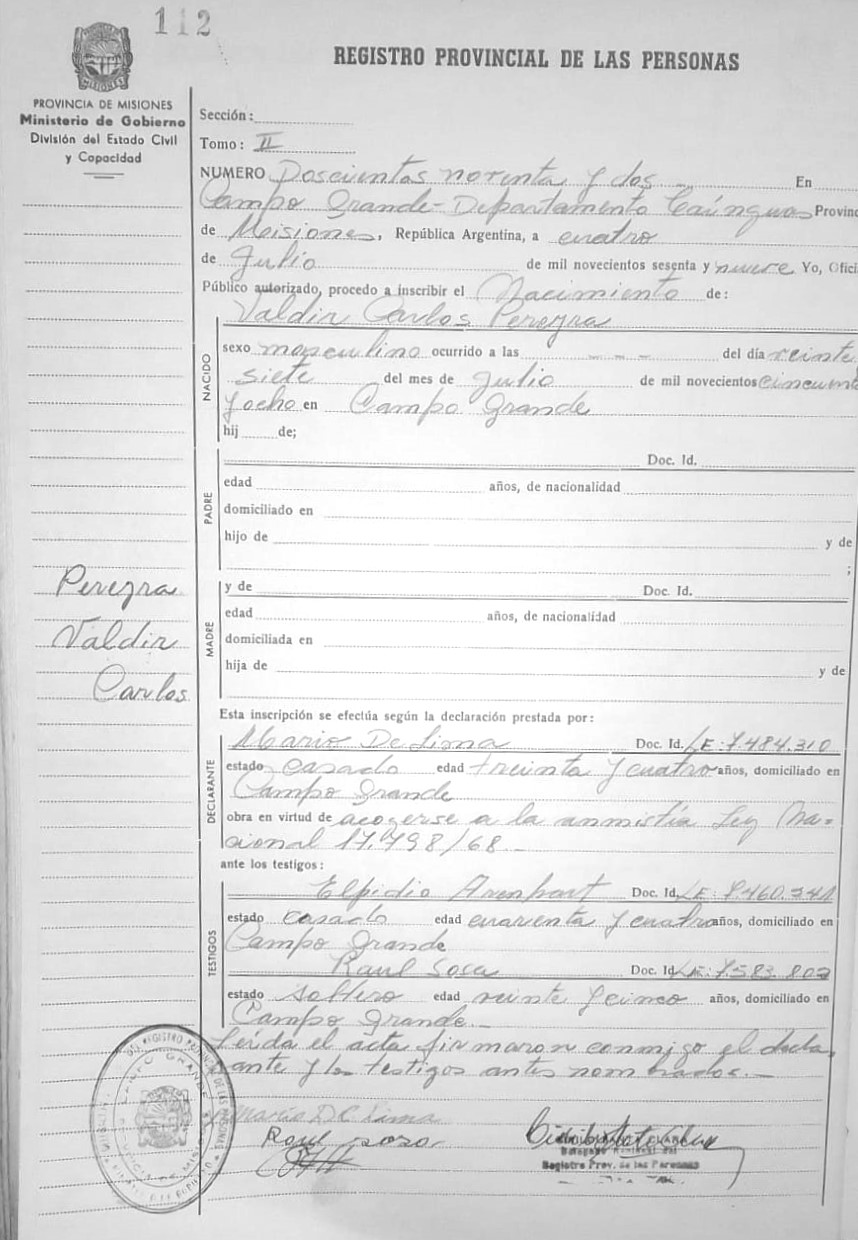 112
REGISTRO PROVINCIAL DE LAS PERSONAS
PROVINCIA DE MISIONES
Ministerio de Gobierno
División del Estado Civil
y Capacidad
Sección:
Tomo: II
NUMERO Doscientos noventa y dos En
Campo Grande - Departamento Cainguas Provinc
de Misiones, República Argentina, a cuatro
de Julio de mil novecientos sesenta y nueve Yo, Ofici
Público autorizado, procedo a inscribir el Nacimiento de:
Valdir Carlos Pereyra
NACIDO
sexo masculino ocurrido a las - - - del día veinte
siete del mes de Julio de mil novecientos cincuenta
y ocho en Campo Grande
hij de;
PADRE
Doc. Id.
edad años, de nacionalidad
domiciliado en
hijo de y de
;
MADRE
y de Doc. Id.
edad años, de nacionalidad
domiciliada en
hija de y de
Pereyra
Valdir
Carlos
Esta inscripción se efectúa según la declaración prestada por:
DECLARANTE
Mario De Lima Doc. Id. LE: 7.484.310
estado casado edad treinta y cuatro años, domiciliado en
Campo Grande
obra en virtud de acogerse a la anmistía Ley Na-
cional 17.798/68.-
ante los testigos:
TESTIGOS
Elpidio Doc. Id. LE:
estado casado edad cuarenta y cuatro años, domiciliado en
Campo Grande
Raul Sosa Doc. Id. LE: 7.583.802
estado soltero edad veinte y cinco años, domiciliado en
Campo Grande.-
Leída el acta firmaron conmigo el decla-
rante y los testigos antes nombrados.-
Mario D.C Lima
Raul soso
Registro Prov. de las Personas